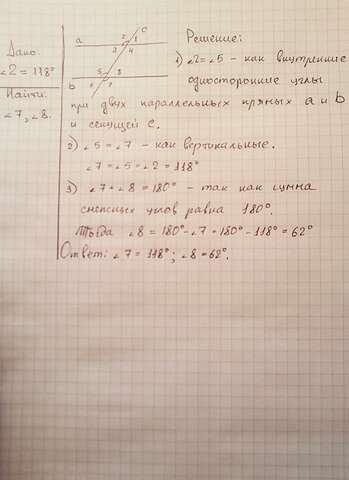 Дано:
∠2 = 118°
Найти:
∠7, ∠8.
a
b
c
2 1
3 4
5 8
6 7
Решение:
1) ∠2=∠5 - как внутренние
односторонние углы
при двух параллельных прямых a и b
и секущей c.
2) ∠5 = ∠7 - как вертикальные.
∠7 = ∠5 = ∠2 = 118°
3) ∠7 + ∠8 = 180° - так как сумма
смежных углов равна 180°.
Тогда ∠8 = 180° - ∠7 = 180° - 118° = 62°
Ответ: ∠7 = 118°; ∠8 = 62°.